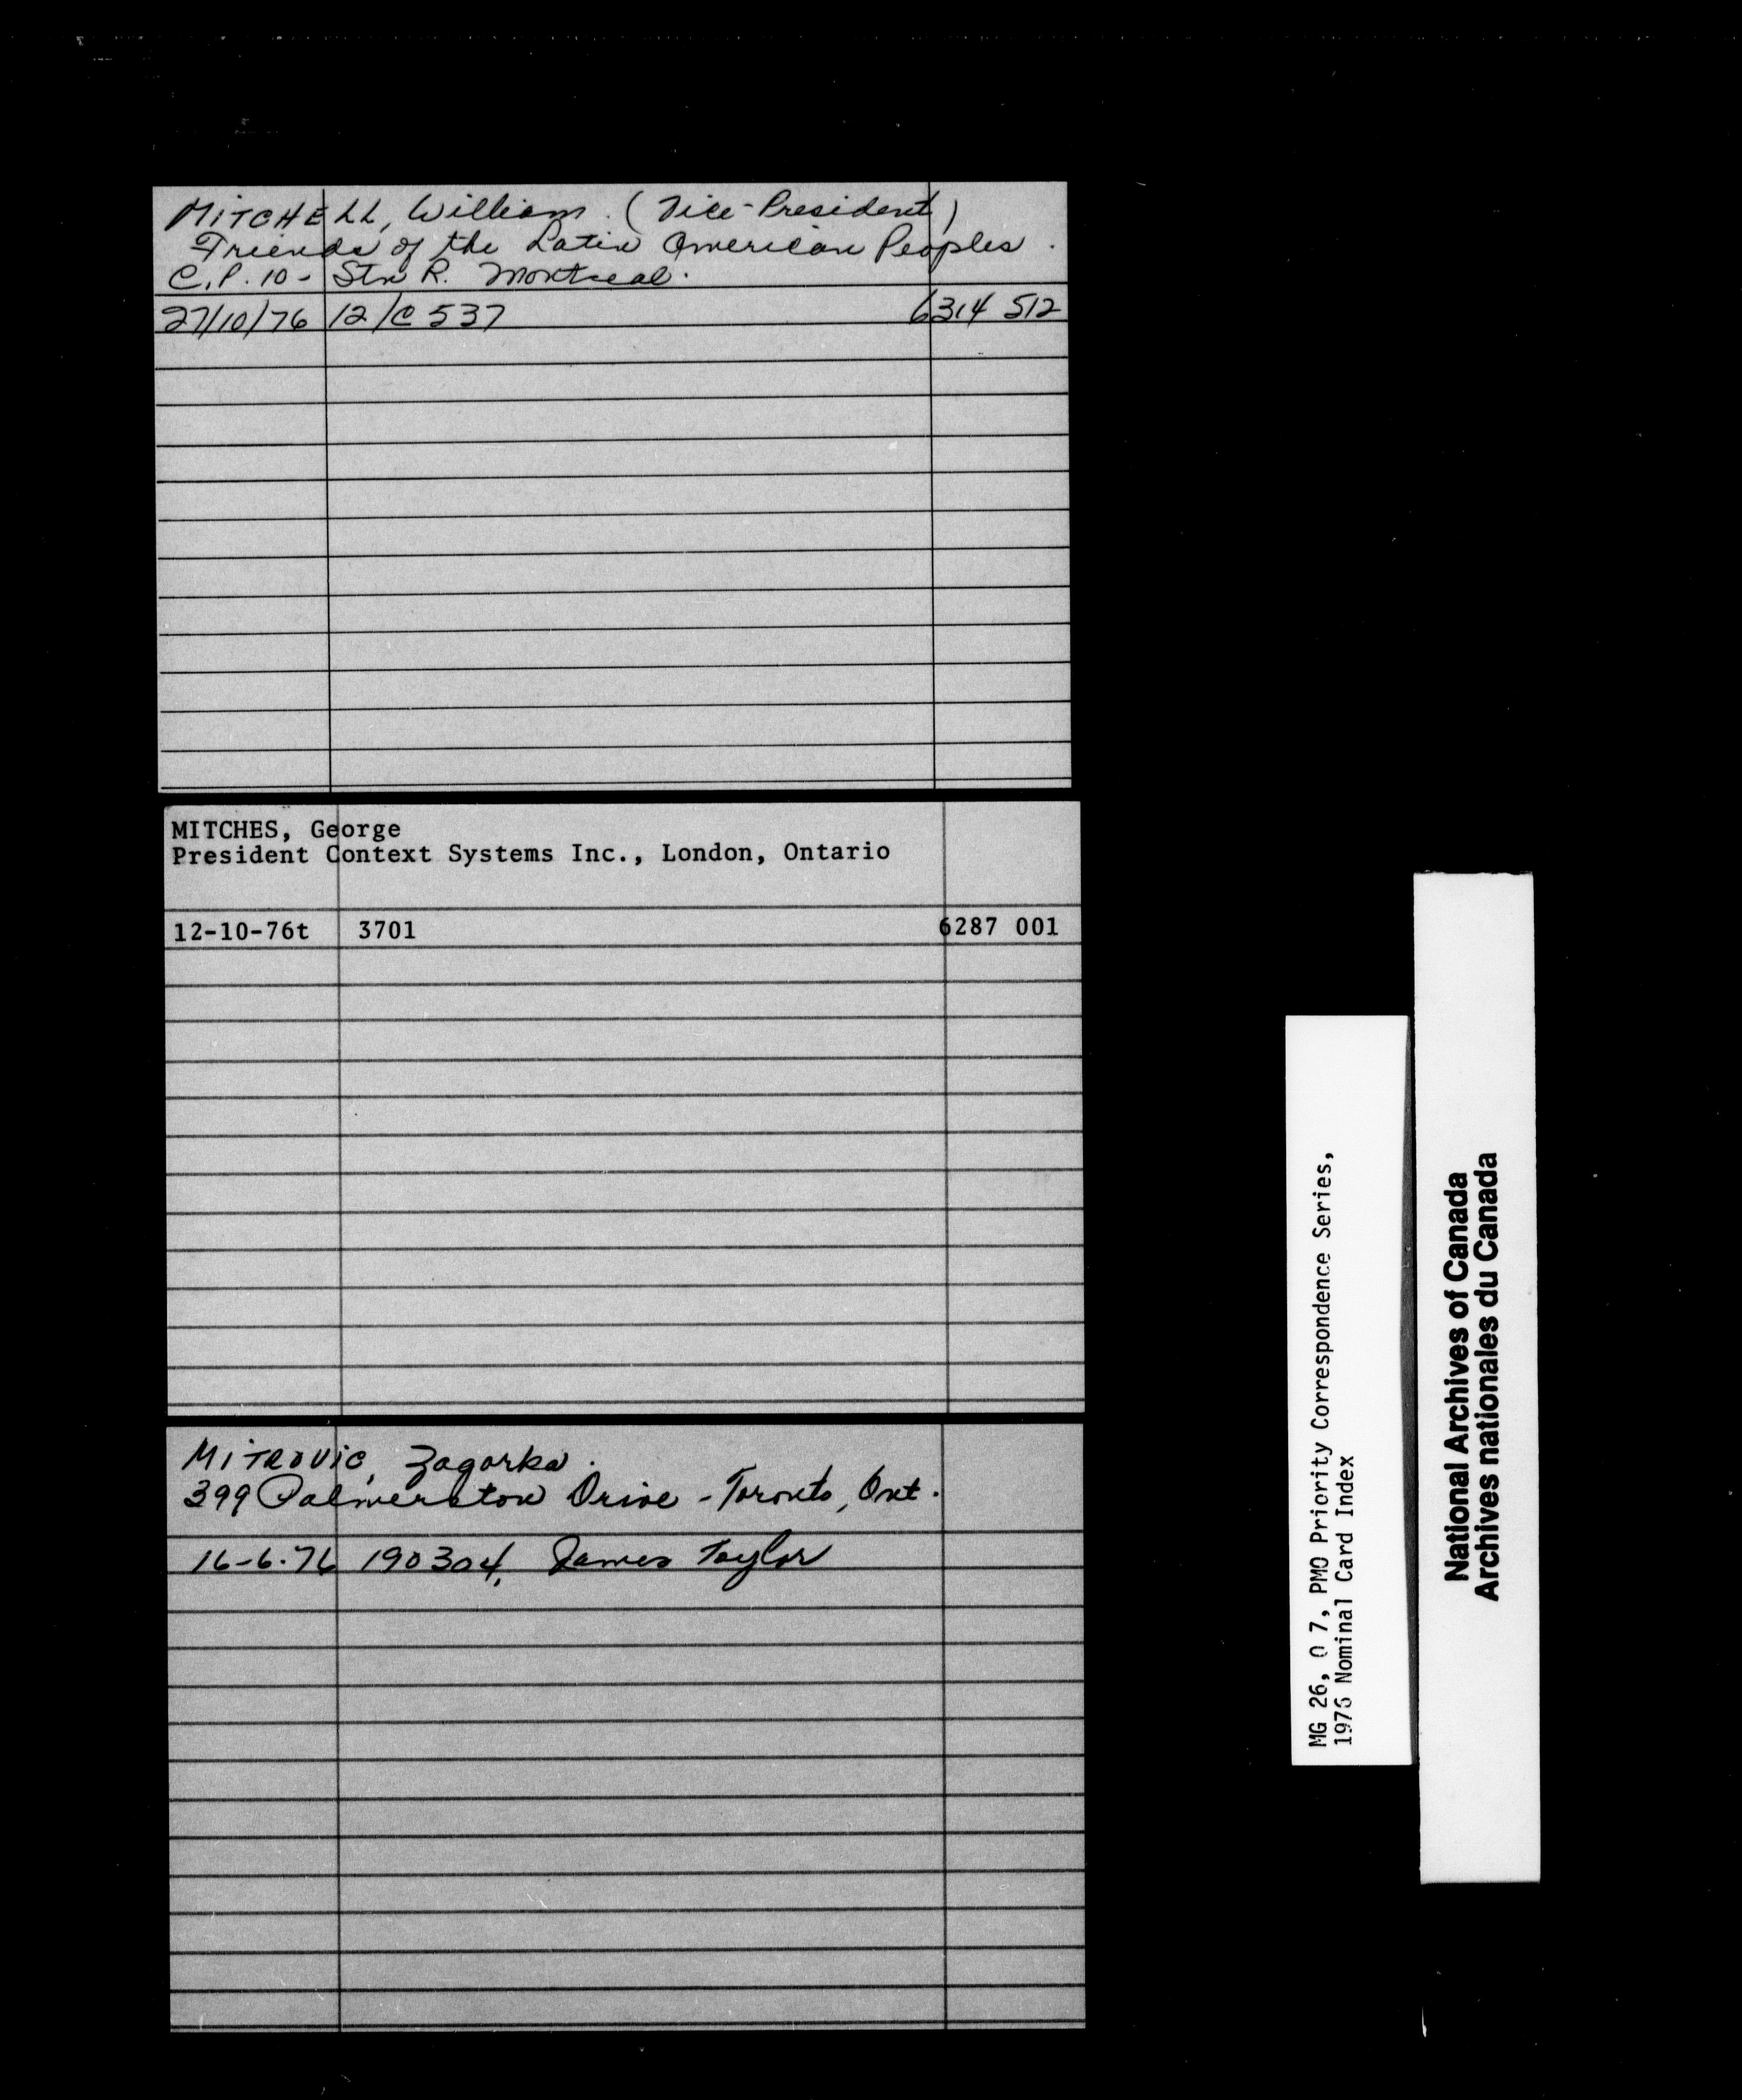 MITCHELL, William. (Vice-President)
Friends of the Latin American Peoples.
C.P. 10 - Stn R. Montreal.
27/10/76 12/C 537 6314 512
MITCHES, George
President Context Systems Inc., London, Ontario
12-10-76t 3701 6287 001
MITROVIC, Zagorka.
399 Palmerston Drive - Toronto, Ont.
16-6-76 190304, James Taylor
MG 26, O 7, PMO Priority Correspondence Series,
1976 Nominal Card Index
National Archives of Canada
Archives nationales du Canada